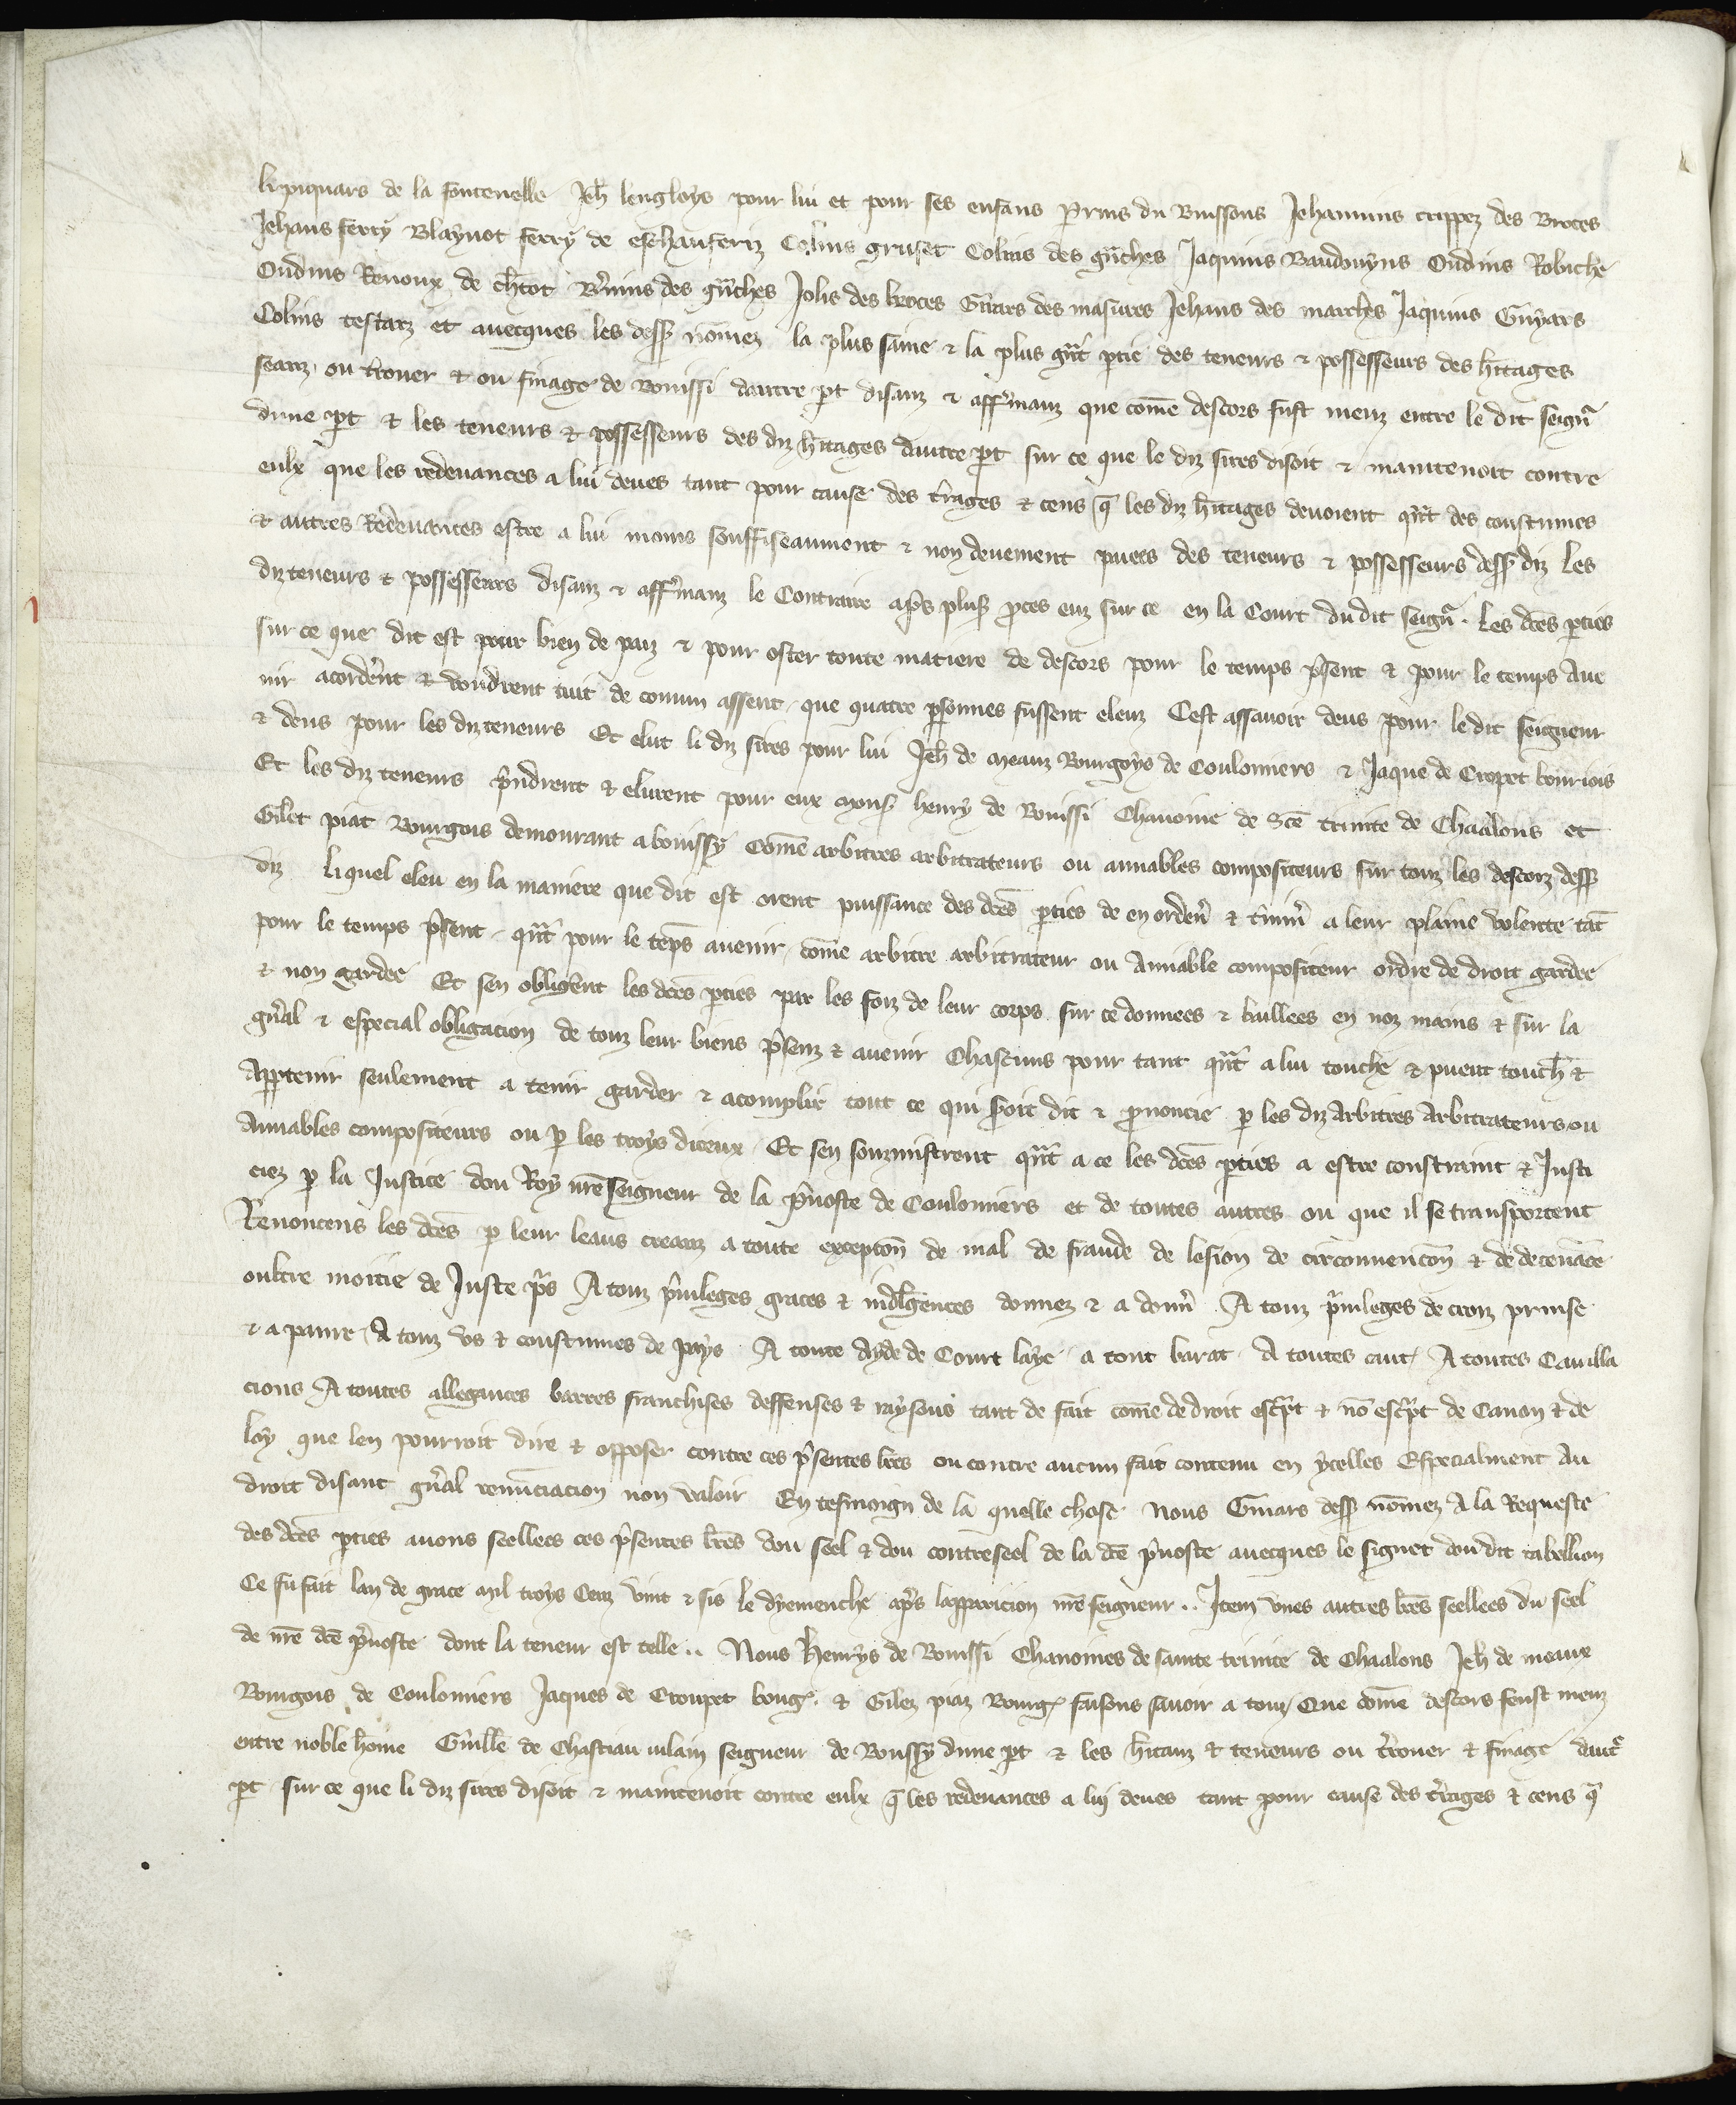 li piquars de la fontenelle Jeh̄ lengloys pour lui et pour ses enfans Perins du Buissons Jehannins crippez des Broces
Jehans ferry Blaynot ferry de eschauferiz Colins gruset Colins des gn̄ches Jaquins Baudouyns Oudins Robiche
Oudins Renoux de ch̄tot des gn̄ches Jolis des broces Girars des masures Jehans des marches Jaquins Guyars
Colins testarz et auecques les dess9 nōmez la plus saine & la plus gn̄t ptie des teneurs & possesseurs des h̄itages
seanz ou t̄rouer & ou finage de Bouissi dautre pt disanz & affmanz que com̄e descors fust meuz entre le dit seign̄
dune pt & les teneurs & possesseurs des diz h̄itages dautre pt sur ce que le diz sires disoit & maintenoit contre
eulx que les redeuances a lui deues tant pour cause des t̄rages & cens q̄ les diz h̄itages deuoient qn̄t des coustumes
& autres Redeuances estre a lui moins souffiseaument & non deuement paiees des teneurs & possesseurs dess9 diz Les
diz teneurs & possesseurs disanz & affmanz le Contraire ap̄s plus9 pces euz sur ce en la Court du dit seign̄ . Les dc̄es pties
sur ce que dit est pour bien de paiz & pour oster toute matiere de descors pour le temps p̄sent & pour le temps aue
nir acorder̄nt & voudrent tuit de comun assent que quatre psonnes fussent eleuz Cest assauoir deus pour ledit seigneur
& deus pour les diz teneurs Et elut li diz sires pour lui Jeh̄ de meauz Bourgoys de Coulomiers & Jaque de Cropet bourjois
Et les diz teneurs p̄ndrent & elurent pour eux mons9 henry de Bouissi Chanoine de Sc̄e trinite de Chaalons et
Gilet piat Bourgois demourant a bouissy Com̄e arbitres arbitrateurs ou amiables compositeurs sur touz les descorz dess9
diz Liquel eleu en la maniere que dit est orent puissance des dc̄es pties de en orden̄ & t̄min̄ a leur plaine volente tāt
pour le temps p̄sent qn̄t pour le tēps auenir com̄e arbitre arbitrateur ou Amiable compositeur ordre de droit gardee
& non gardee Et sen obligēnt les dc̄es pties par les foiz de leur corps sur ce donnees & baillees en noz mains & sur la
gn̄al & especial obligacion de touz leur biens p̄senz & auenir Chascuns pour tant qn̄t a lui touche & puent touch̄ &
Appartenir seulement a tenir garder & acomplir tout ce qui s̄oit dit & p̄noncie p les diz Arbitres Arbitrateurs ou
Amiables compositeurs ou p les troys diceux Et sen soumistrent qn̄t a ce les dc̄es pties a estre constraint & Justi
ciez p la Justice dou Roy nr̄e seigneur de la p̄uoste de Coulomiers et de toutes autres ou que il se transportent
Renoncens les dc̄es p leur leaus creanz a toute excepcōn de mal de fraude de lesion de circonuencōn & de deceuāce
oultre moitie de Juste p̄s A touz p̄uileges graces & indl̄gences donnez & a donn̄ A touz p̄uileges de croiz prinse
& a panre A touz vs & coustumes de pays A toute Ayde de Court laye a tout barat A toutes caut9 A toutes Cauilla
cions A toutes allegances barres franchises deffenses & raysons tant de fait com̄e de droit escp̄t & nō escp̄t de Canon & de
loy que len pourroit dire & opposer contre ces p̄sentes lr̄es ou contre aucun fait contenu en ycelles Especialment Au
droit disant gn̄al renūciacion non valoir En tesmoign de la quelle chose Nous Guiars dess9 nōmez A la Requeste
des dc̄es pties auons seellees ces p̄sentes lr̄es dou seel & dou contreseel de la dc̄e p̄uoste auecques le signet dou dit tabellion
Ce fu fait lan de grace mil troys Cenz vint & sis le dyemenche ap̄s lapparicion nr̄e seigneur .. Jtem vnes autres lr̄es seellees du seel
de nr̄e dc̄e p̄uoste dont la teneur est telle .. Nous Henrys de Bouissi Chanoines de sainte trinite de Chaalons Jeh̄ de meaux
Bourgois de Coulomiers Jaques de Croupet boug9 . & Gilez piaz Bourg9 faisons sauoir a touz Que com̄e descors feust meuz
entre noble hōme Guill̄e de Chastiau vilain seigneur de Boussy dune pt & les h̄itanz & teneurs ou t̄rouer & finage dautr̄
pt sur ce que li diz sires disoit & maintenoit contre eulx q̄ les redeuances a luy deues tant pour cause des t̄rages & cens q̄